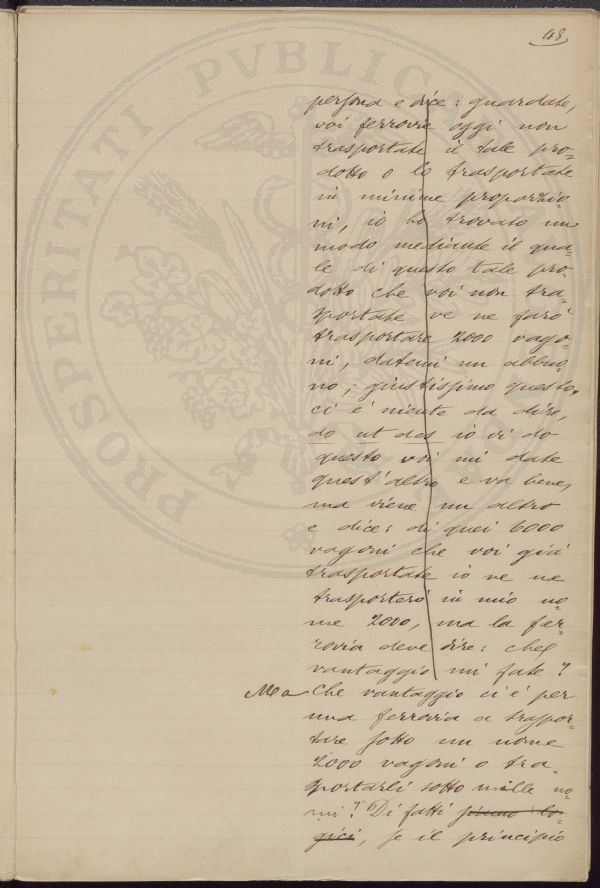 48
persona e dice: guardate,
voi ferrovie oggi non
trasportate il tale pro-
dotto o lo trasportate
in minime proporzio-
ni, io ho trovato un
modo mediante il qua-
le di questo tale pro-
dotto che voi non tra-
sportate ve ne farò
trasportare 2000 vago-
ni, datemi un abbuo-
no; giustissimo questo,
ci è niente da dire,
do ut des io vi do
questo voi mi date
quest'altro e va bene,
ma viene un altro
e dice: di quei 6000
vagoni che voi già
trasportate io ve ne
trasporterò in mio no-
me 2000, ma la fer-
rovia deve dire: che
vantaggio mi fate?
Ma che vantaggio ci è per
una ferrovia a traspor-
tare sotto un nome
2000 vagoni o tra-
sportarli sotto mille no-
mi? Di fatti siamo lo-
gici, se il principio
PROSPERITATI PVBLICA